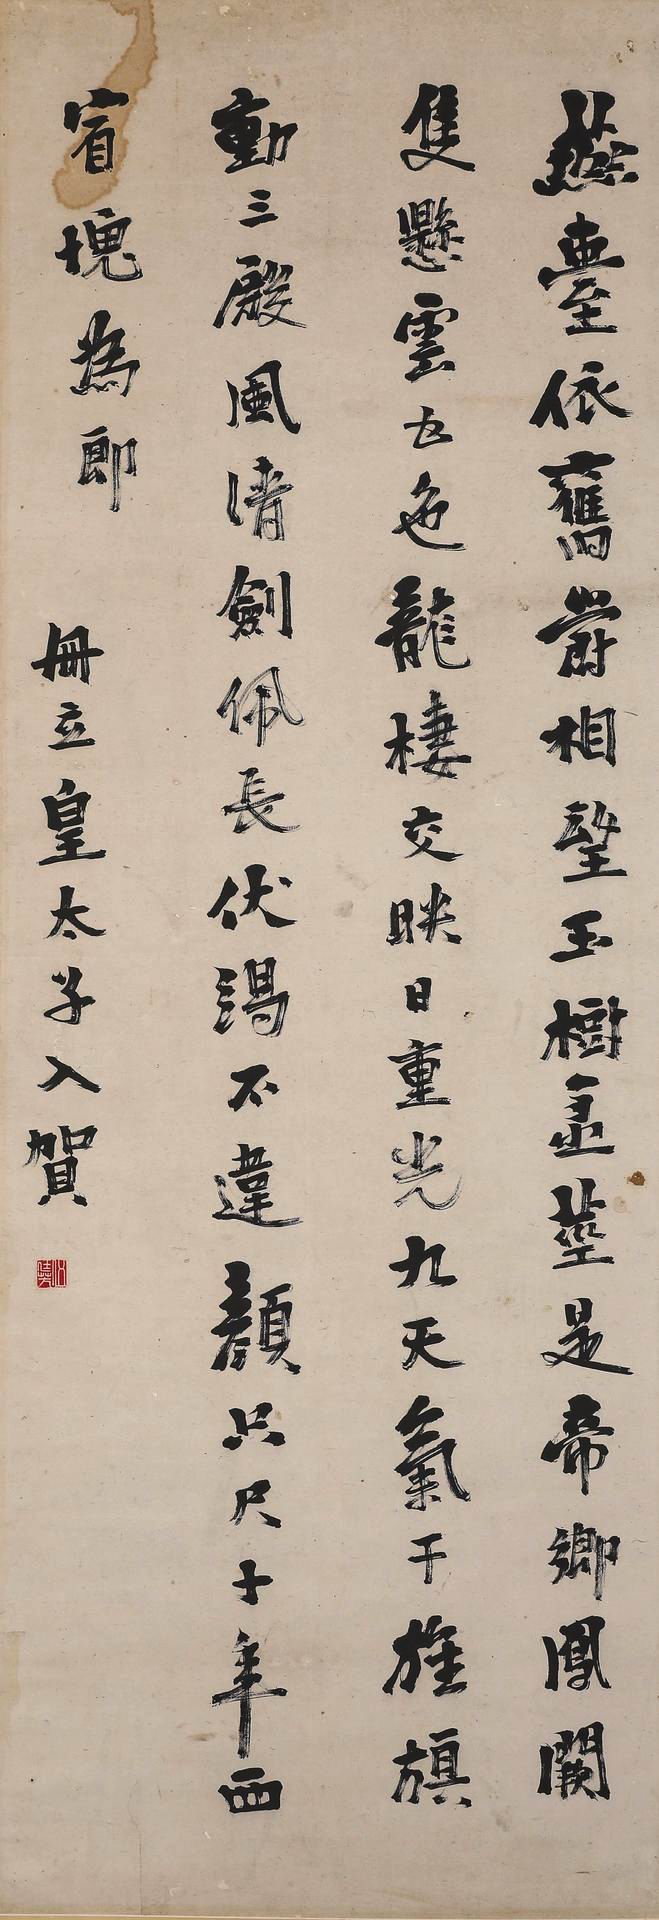 燕臺依舊鬱相望玉樹金莖是帝鄉鳳闕
隻懸雲五色龍樓交映日重光九天氣干旌旗
動三殿風清劍佩長伏謁不違顏只尺十年西
省愧為郎 冊立皇太子入賀